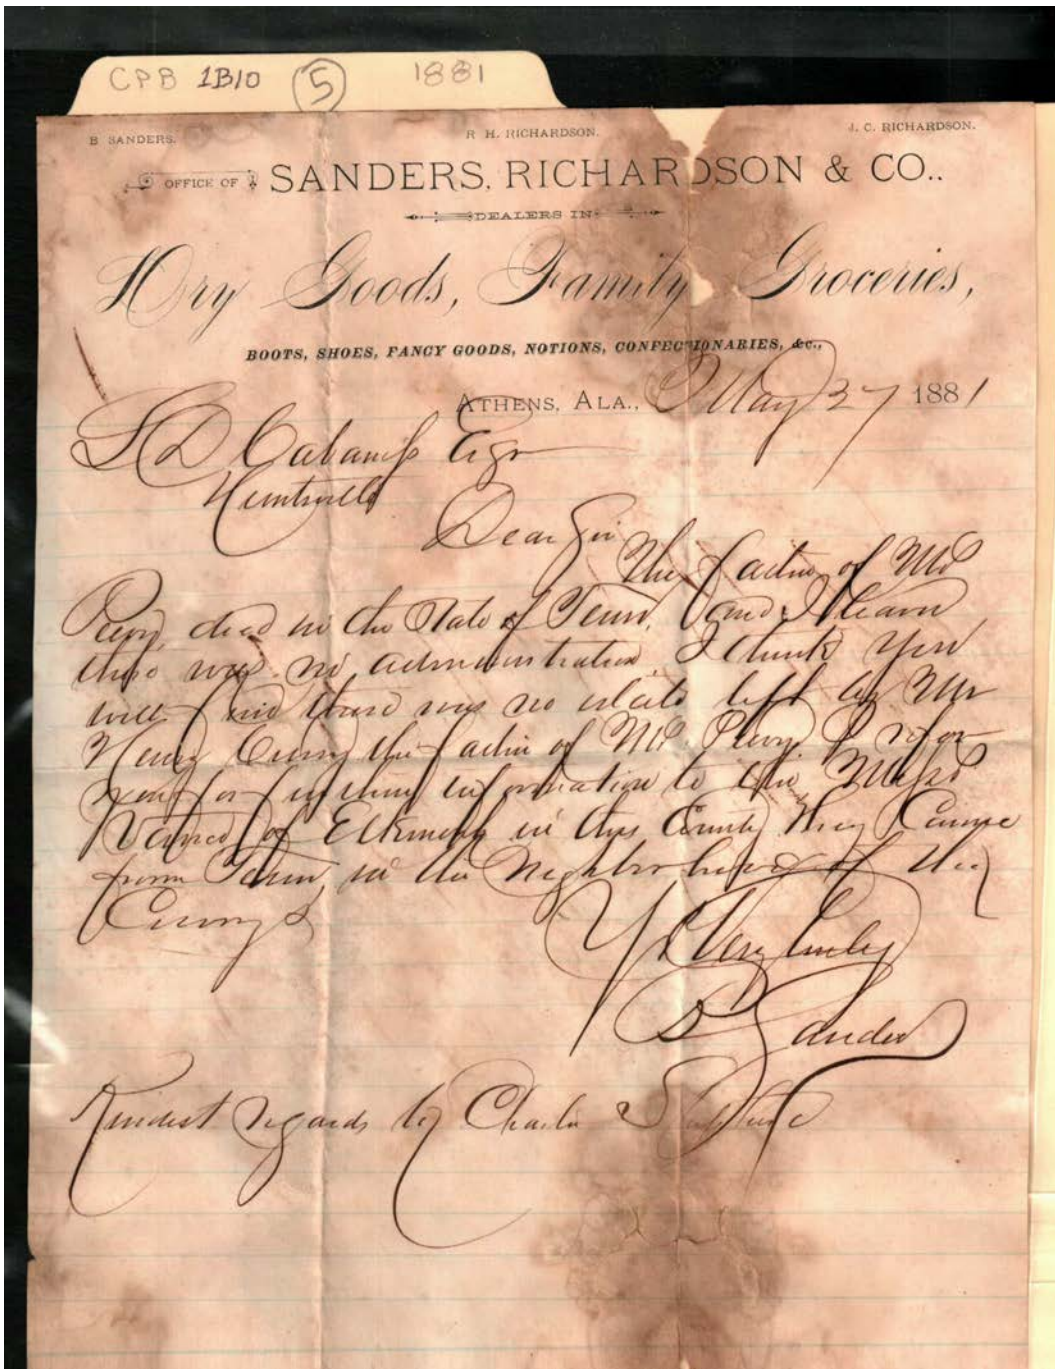 CPB 1B10 5 1881
B SANDERS. R H. RICHARDSON. J. C. RICHARDSON.
OFFICE OF SANDERS, RICHARDSON & CO..
DEALERS IN
Dry Goods, Family Groceries,
BOOTS, SHOES, FANCY GOODS, NOTIONS, CONFECTIONARIES, &c.,
ATHENS, ALA., May 27 1881
S D Cabaniss Esqr
Huntsville
Dear Sir
The father of
died in the State of Tenn, and I learn
there was no administration. I think you
will find there was no estate left by Mr
Henry the father of I refer
you for further information to the
of Elkmont in this County They Came
from Tenn, in the Neighborhood of the

Yr Very truly
B Sanders
Kindest regards to Charlie